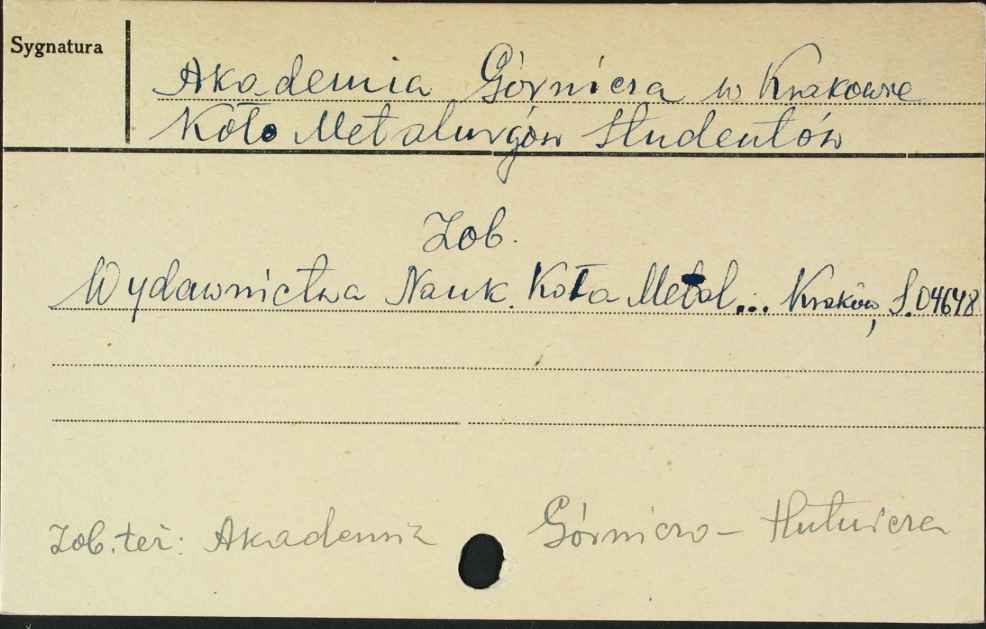 Sygnatura
Akademia Górnicza w Krakowie
Koło Metalurgów Studentów
Zob.
Wydawnictwa Nauk. Koła Metal... Kraków, S.04648
Zob. też: Akademia Górniczo-Hutnicza